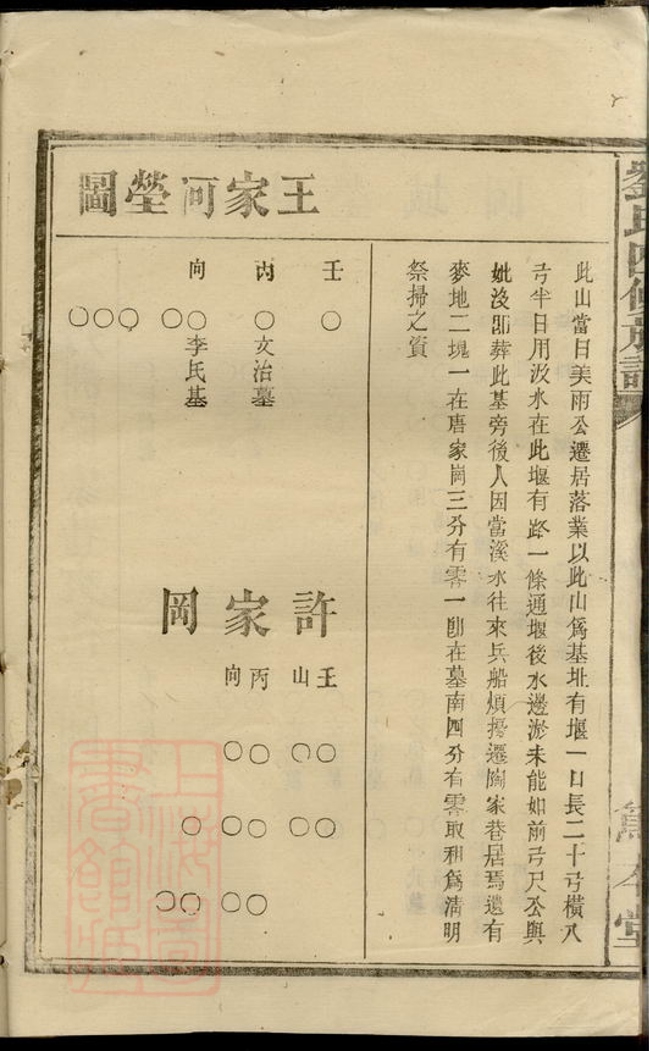 劉氏四修族譜
堂
王家河塋圖
此山當日美雨公遷居落業以此山為基址有堰一口長二十弓橫八
弓半日用汲水在此堰有路一條通堰後水邊淤未能如前弓尺公與
妣沒即葬此基旁後人因當溪水往來兵船煩擾遷陶家巷居焉遺有
麥地二塊一在唐家崗三分有零一卽在墓南四分有零取租為清明
祭掃之資
壬
丙
向
文治墓
李氏基
許家岡
壬山
丙向
上海圖書館藏